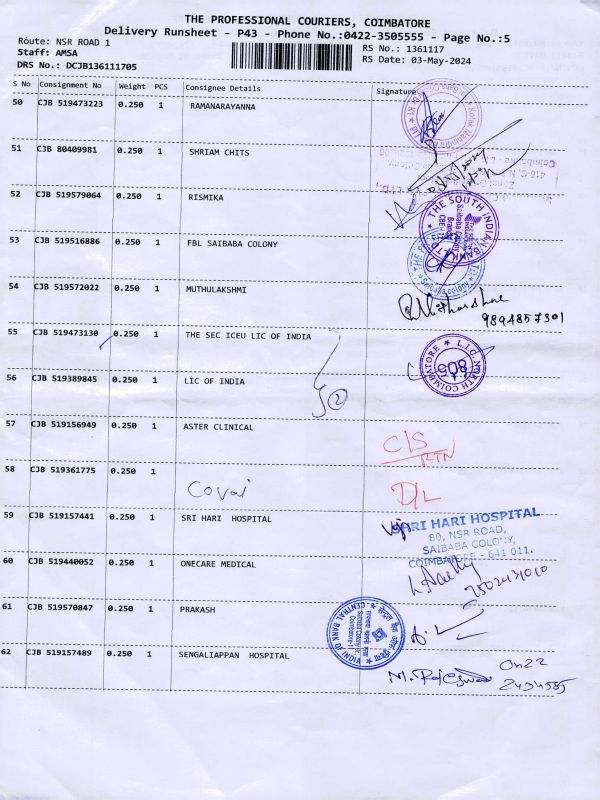 THE PROFESSIONAL COURIERS, COIMBATORE
Delivery Runsheet - P43 - Phone No.:0422-3505555 - Page No.:5
Route: NSR ROAD 1
RS No.: 1361117
Staff: AMSA
RS Date: 03-May-2024
DRS No.: DCJB136111705
S No Consignment No Weight PCS Consignee Details Signature
50 CJB 519473223 0.250 1 RAMANARAYANNA
51 CJB 80409981 0.250 1 SHRIAM CHITS
52 CJB 519579064 0.250 1 RISMIKA
THE SOUTH INDIAN BANK LTD
53 CJB 519516886 0.250 1 FBL SAIBABA COLONY
54 CJB 519572022 0.250 1 MUTHULAKSHMI
9894857301
55 CJB 519473130 0.250 1 THE SEC ICEU LIC OF INDIA
L.I.C. NORTH COIMBATORE
805
56 CJB 519389845 0.250 1 LIC OF INDIA
2
57 CJB 519156949 0.250 1 ASTER CLINICAL
C/S
RTN
58 CJB 519361775 0.250 1 Covai D/L
59 CJB 519157441 0.250 1 SRI HARI HOSPITAL
SRI HARI HOSPITAL
80, NSR ROAD,
SAIBABA COLONY,
COIMBATORE - 641 011.
60 CJB 519440052 0.250 1 ONECARE MEDICAL
61 CJB 519570847 0.250 1 PRAKASH
CENTRAL BANK OF INDIA
62 CJB 519157489 0.250 1 SENGALIAPPAN HOSPITAL
0422
2434585